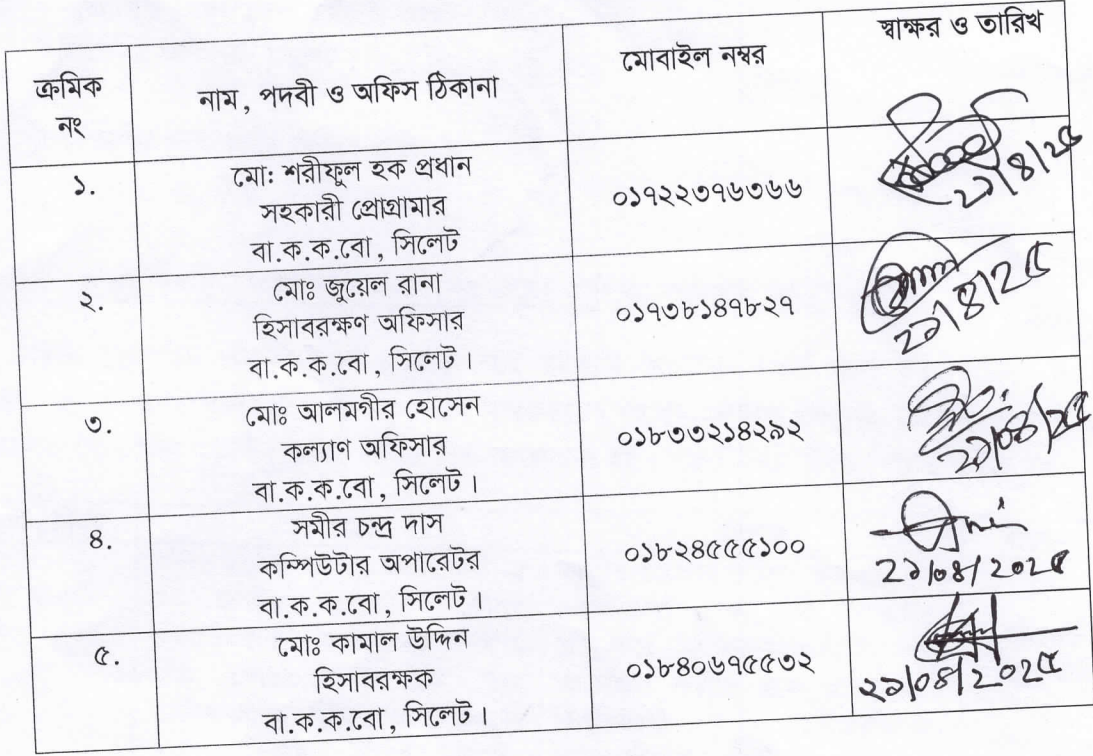 ক্রমিক নং
নাম, পদবী ও অফিস ঠিকানা
মোবাইল নম্বর
স্বাক্ষর ও তারিখ
১.
মো: শরীফুল হক প্রধান
সহকারী প্রোগ্রামার
বা.ক.ক.বো, সিলেট
০১৭২২৩৭৬৩৬৬
২১/৪/২৫
২.
মোঃ জুয়েল রানা
হিসাবরক্ষণ অফিসার
বা.ক.ক.বো, সিলেট।
০১৭৩৮১৪৭৮২৭
২১/৪/২৫
৩.
মোঃ আলমগীর হোসেন
কল্যাণ অফিসার
বা.ক.ক.বো, সিলেট।
০১৮৩৩২১৪২৯২
২১/০৪/২৫
৪.
সমীর চন্দ্র দাস
কম্পিউটার অপারেটর
বা.ক.ক.বো, সিলেট।
০১৮২৪৫৫৫১০০
২১/০৪/২০২৫
৫.
মোঃ কামাল উদ্দিন
হিসাবরক্ষক
বা.ক.ক.বো, সিলেট।
০১৮৪০৬৭৫৫৩২
২১/০৪/২০২৫